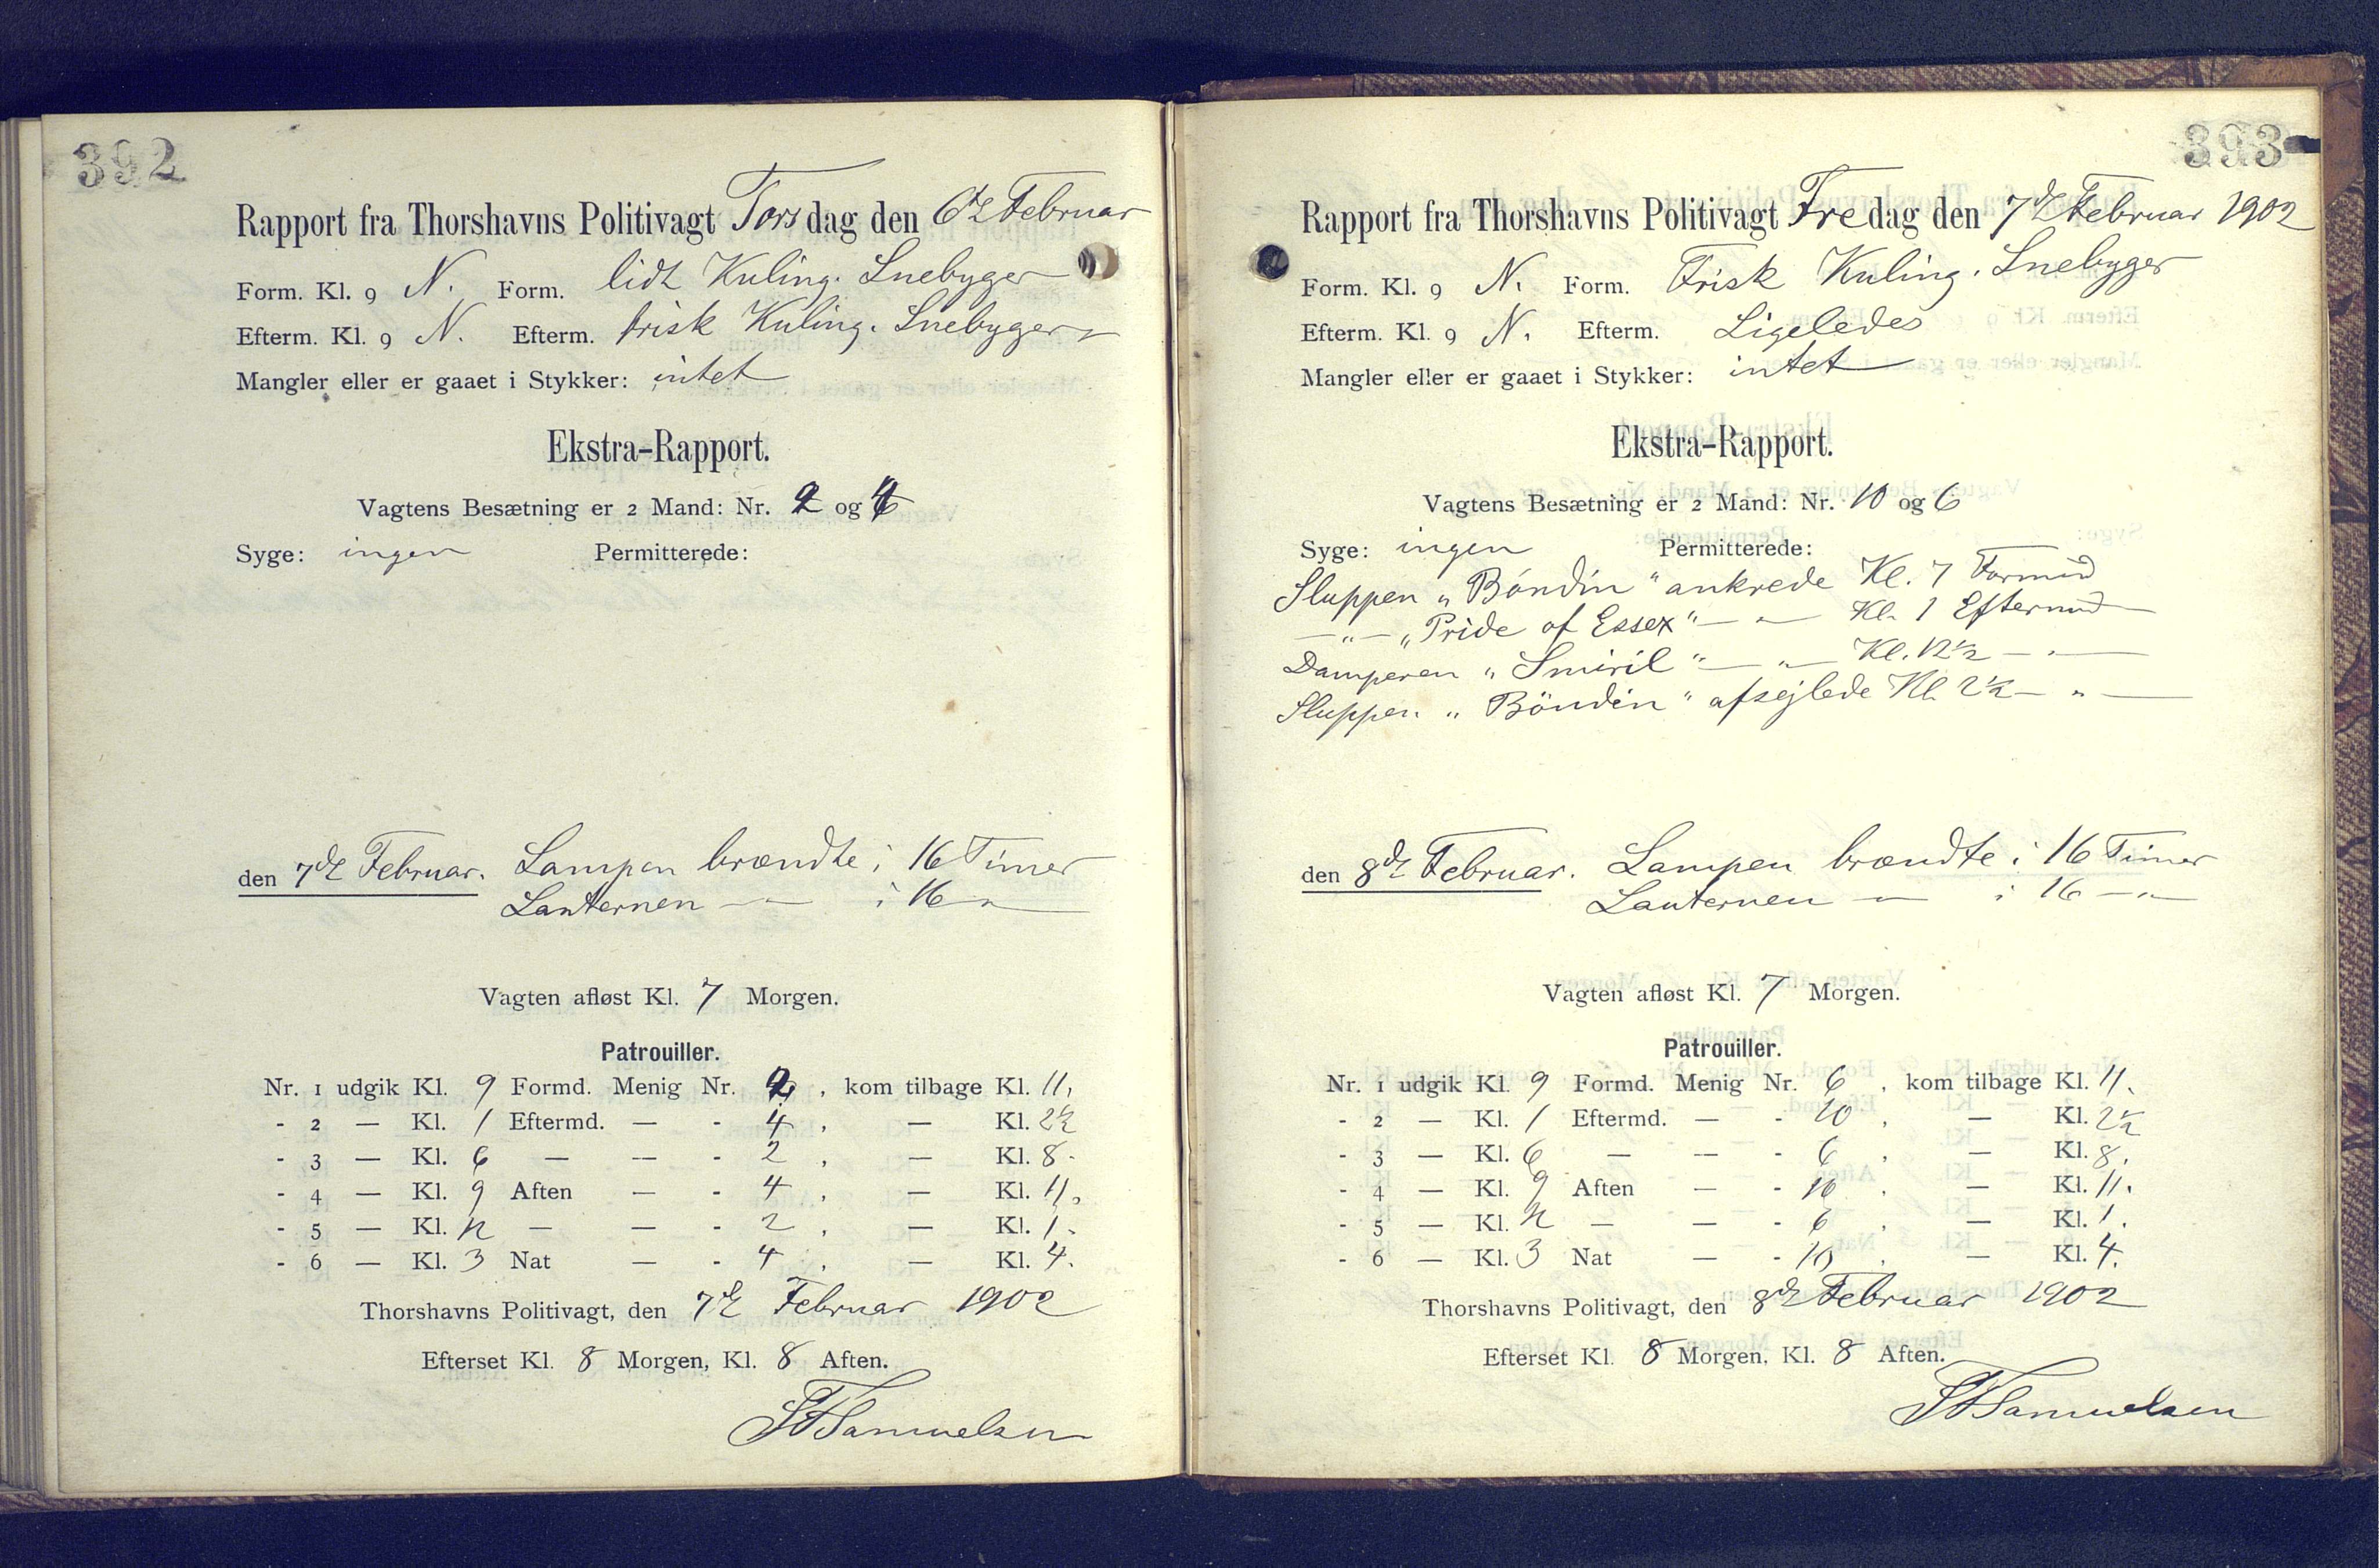 392
Rapport fra Thorshavns Politivagt Torsdag den 6te Februar
Form. Kl. 9 N. Form. lidt Kuling. Snebyger
Efterm. Kl. 9 N. Efterm. frisk Kuling. Snebyger
Mangler eller er gaaet i Stykker: intet
Ekstra-Rapport.
Vagtens Besætning er 2 Mand: Nr. 2 og 4
Syge: ingen Permitterede:
den 7de Februar. Lampen brændte i 16 Timer
Lanternen — " — i 16 — " —
Vagten afløst Kl. 7 Morgen.
Patrouiller.
Nr. 1 udgik Kl. 9 Formd. Menig Nr. 2, kom tilbage Kl. 11.
- 2 — Kl. 1 Eftermd. — - 4, — Kl. 2½
- 3 — Kl. 6 — — - 2, — Kl. 8.
- 4 — Kl. 9 Aften — - 4, — Kl. 11.
- 5 — Kl. 12 — — - 2, — Kl. 1.
- 6 — Kl. 3 Nat — - 4, — Kl. 4.
Thorshavns Politivagt, den 7de Februar 1902
Efterset Kl. 8 Morgen, Kl. 8 Aften.
Samuelsen
393
Rapport fra Thorshavns Politivagt Fredag den 7de Februar 1902
Form. Kl. 9 N. Form. Frisk Kuling. Snebyger
Efterm. Kl. 9 N. Efterm. Ligeledes
Mangler eller er gaaet i Stykker: intet
Ekstra-Rapport.
Vagtens Besætning er 2 Mand: Nr. 10 og 6
Syge: ingen Permitterede:
Sluppen "Bóndin" ankrede Kl. 7 Formd
— " — "Pride of Essex" — " — Kl. 1 Eftermd
Damperen "Smiril" — " — Kl. 12½ — " —
Sluppen "Böndin" afsejlede Kl. 2½ — " —
den 8de Februar. Lampen brændte i 16 Timer
Lanternen — " — i 16 — " —
Vagten afløst Kl. 7 Morgen.
Patrouiller.
Nr. 1 udgik Kl. 9 Formd. Menig Nr. 6, kom tilbage Kl. 11.
- 2 — Kl. 1 Eftermd. — - 10, — Kl. 2½
- 3 — Kl. 6 — — - 6, — Kl. 8.
- 4 — Kl. 9 Aften — - 10, — Kl. 11.
- 5 — Kl. 12 — — - 6, — Kl. 1.
- 6 — Kl. 3 Nat — - 10, — Kl. 4.
Thorshavns Politivagt, den 8de Februar 1902
Efterset Kl. 8 Morgen, Kl. 8 Aften.
Samuelsen